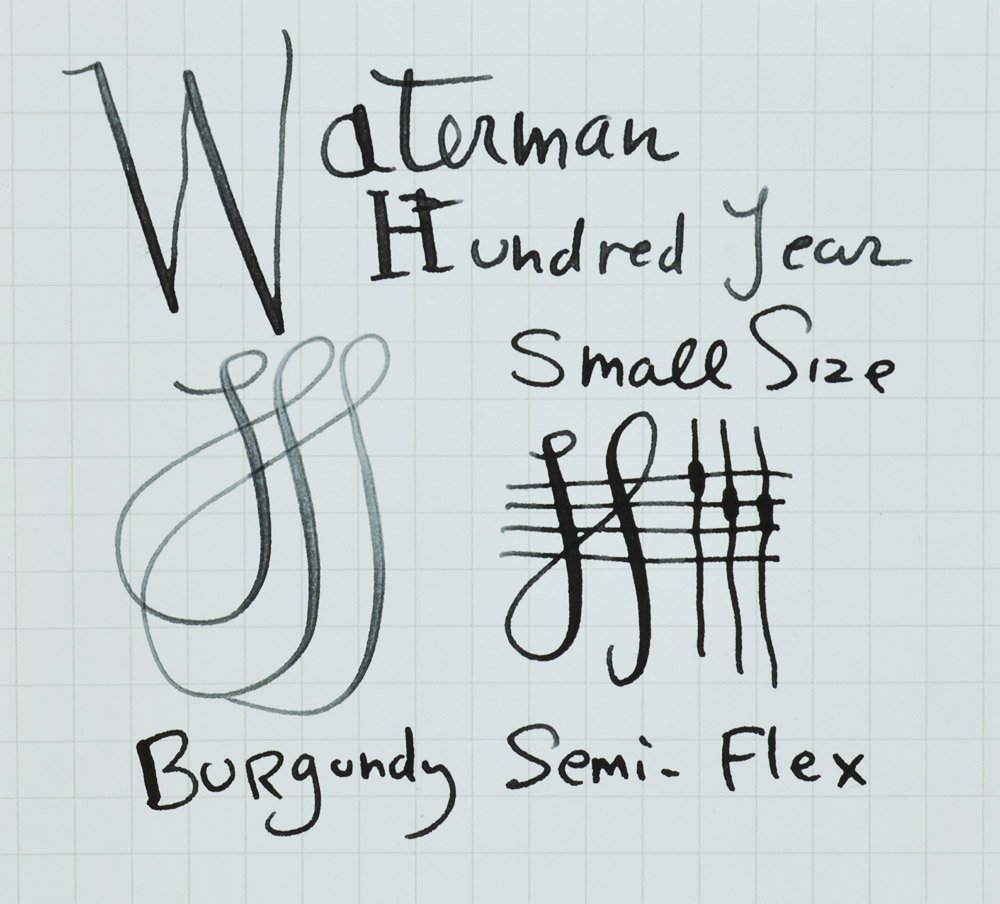 Waterman
Hundred Year
Small Size
Burgundy Semi-Flex